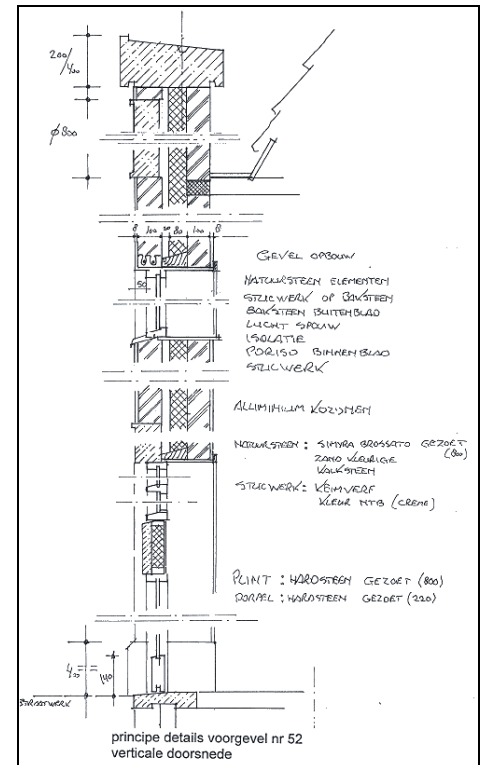 200/
400
ø800
8 100 20 80 100 8
50
GEVEL OPBOUW
NATUURSTEEN ELEMENTEN
STUCWERK OP BAKSTEEN
BAKSTEEN BUITENBLAD
LUCHT SPOUW
ISOLATIE
PORISO BINNENBLAD
STUCWERK
ALLIMINIUM KOZIJNEN
NATUURSTEEN: SIMYRA BROSSATO GEZOET
(800)
ZAND KLEURIGE
KALKSTEEN
STUCWERK: KEIMVERF
KLEUR NTB (CREME)
PLINT: HARDSTEEN GEZOET (800)
DORPEL: HARDSTEEN GEZOET (220)
400
140
STRAATWERK
principe details voorgevel nr 52
verticale doorsnede